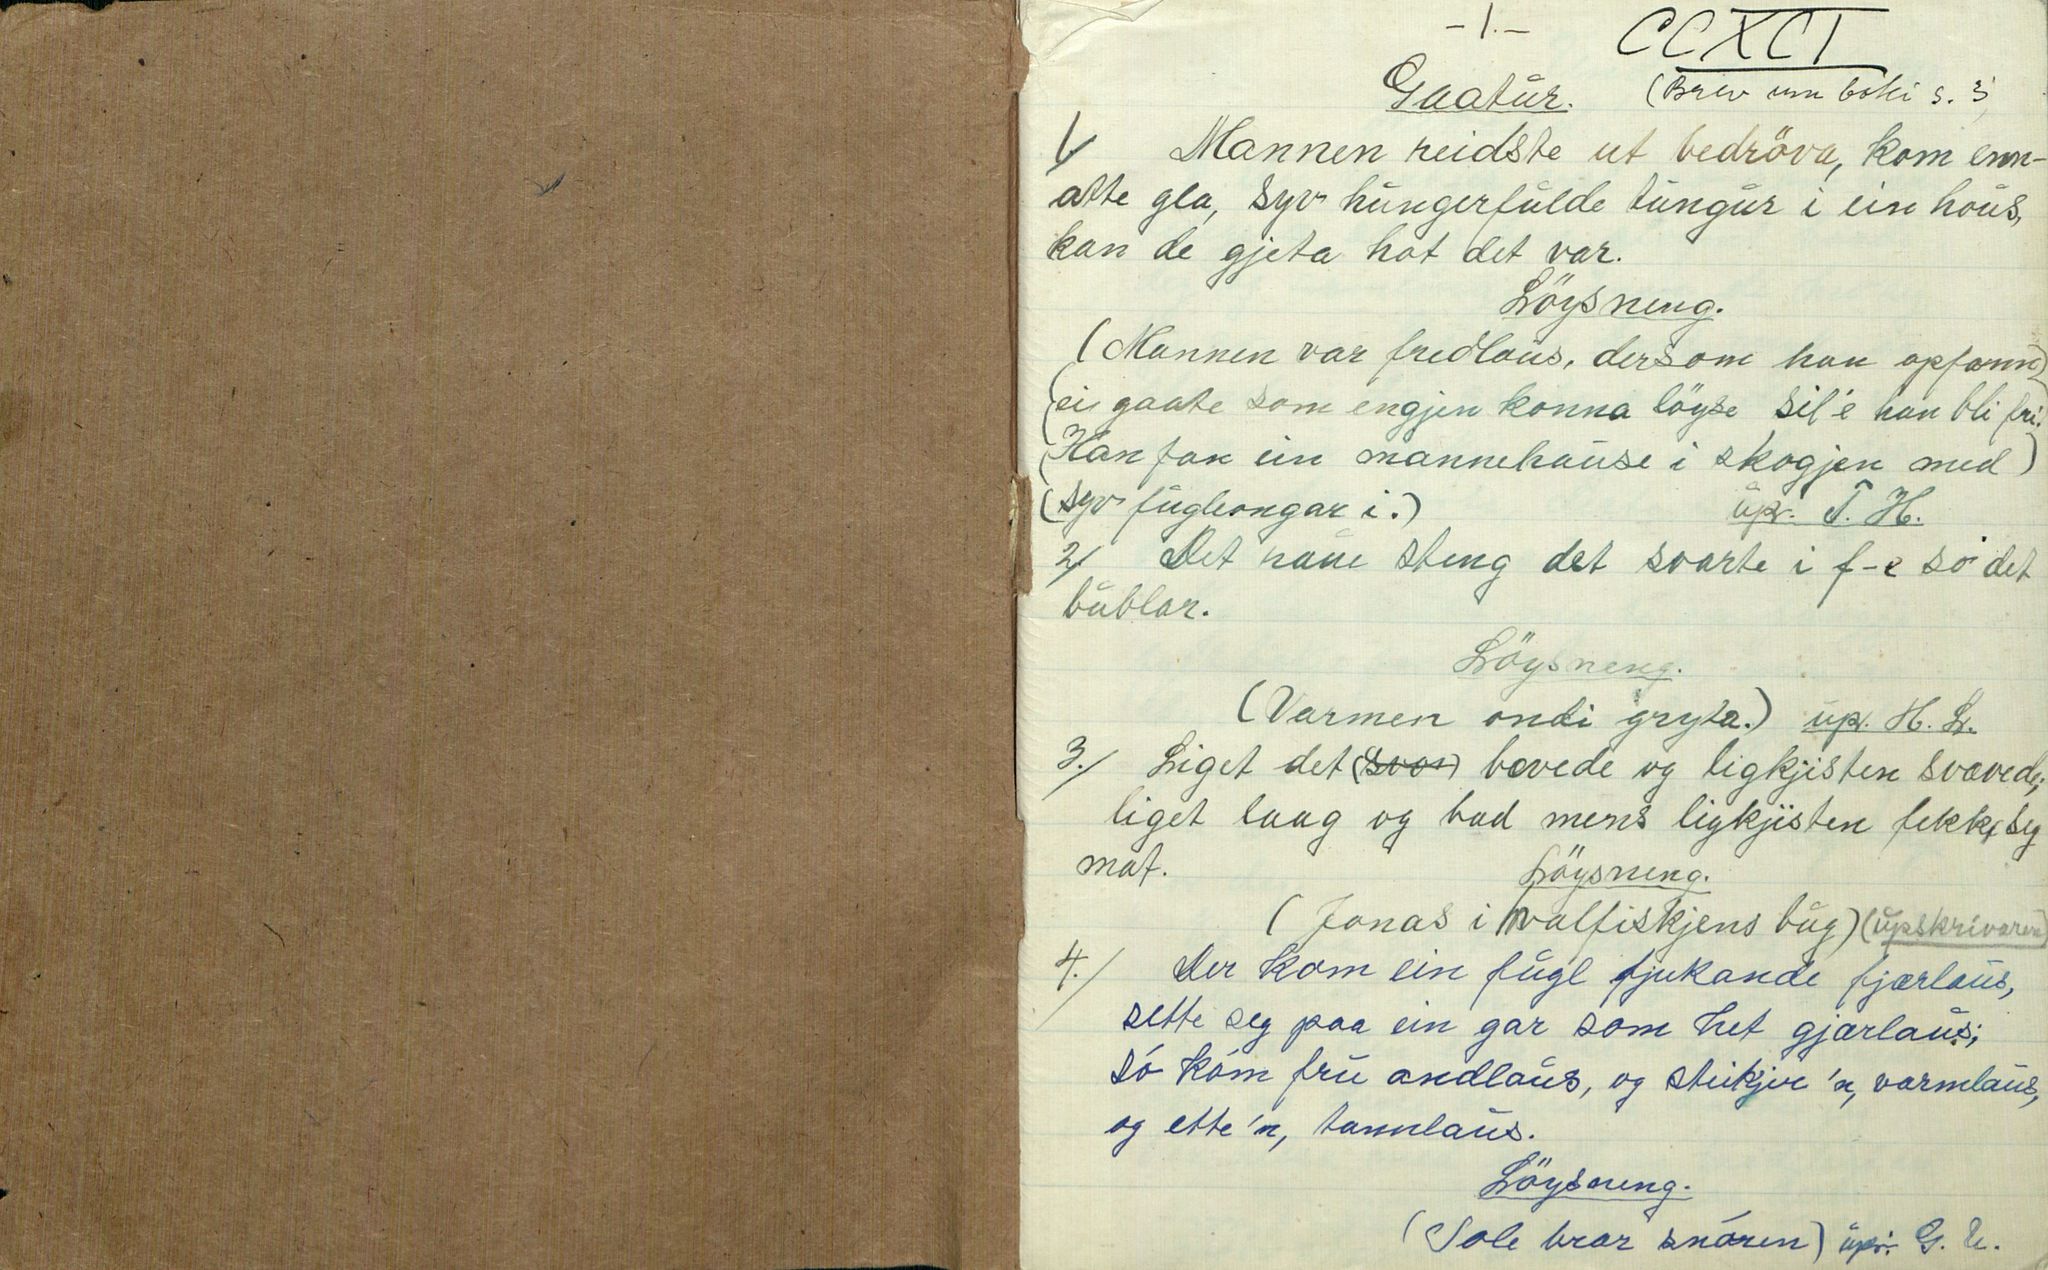 -1.-
CCXCI
Gaatur.
(Brev um boki s. 3)
1/ Mannen reidste ut bedröva, kom enn-
atte gla, syv hungerfulde tungur i ein hous,
kan de gjeta hot det var.
Löysneng.
(Mannen var fredlaus, dersom han opfann)
(ei gaate som engjen konna löyse sil'e han bli fri.)
(Han fan ein mannehause i skogjen med)
(syv fugleongar i.) upr. T. H.
2/ Det raue steng det svarte i f-e só det
bublar.
Löysneng.
(Varmen ondi gryta.) upr. H. L.
3./ Liget det (svor) bevede og ligkjisten svævede;
liget laag og bad mens ligkjisten fekk seg
mat.
Löysneng.
(Jonas i valfiskjens bug) (upskrivaren)
4./ Der kom ein fugl fjukande fjærlaus,
sette seg paa ein gar som het gjærlaus;
só kóm fru andlaus, og steikjer'n, varmlaus,
og ette'n, tannlaus.
Löysneng.
(Sole brar snóren) upr. G. U.